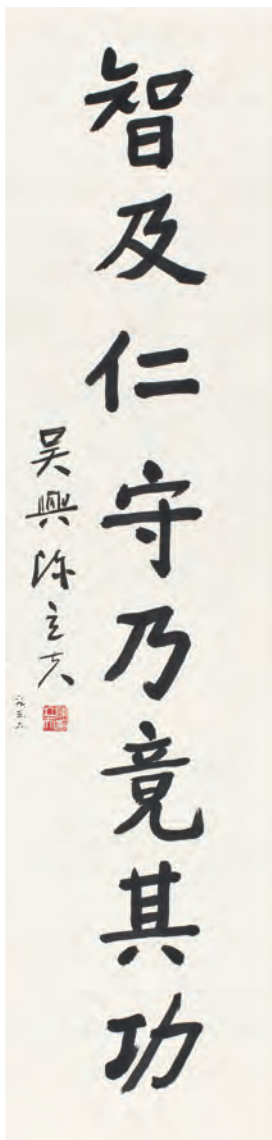 智及仁守乃竟其功
吴興陈立夫